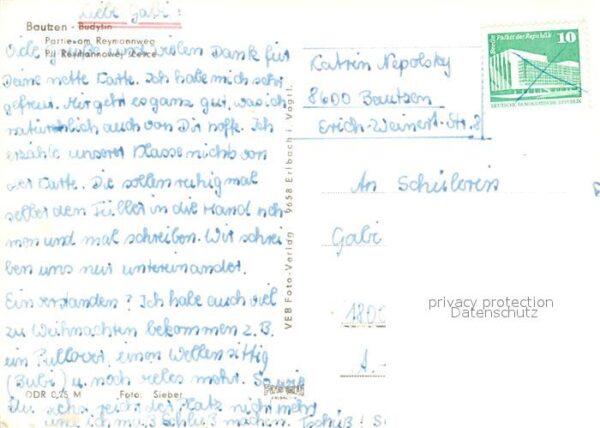 Liebe Gabi!
Bautzen - Budyšin
Partie am Reymannweg
Pij Reymannowej šćežce
Viele Grüße und vielen Dank für
Deine nette Karte. Ich habe mich sehr
gefreut. Mir geht es ganz gut, was ich
natürlich auch von Dir hoffe. Ich
erzähle unserer Klasse nichts von
der Karte. Die sollen ruhig mal
selber den Füller in die Hand neh-
men und mal schreiben. Wir schrei
ben uns nur untereinander.
Einverstanden? Ich habe auch viel
zu Weihnachten bekommen z.B.
ein Pullover, einen Wellensittig
(Bubi) u. noch vieles mehr. So wie
Du sehst reicht der Platz nicht mehr
und ich muß Schluß machen. Tschüß!
DDR 0,25 M Foto: Sieber
VEB Foto-Verlag 9658 Erlbach i. Vogtl.
Katrin Nepolsky
8600 Bautzen
Erich-Weinert-Str. 8
Berlin, Palast der Republik 10
DEUTSCHE DEMOKRATISCHE REPUBLIK
An Schülerin
Gabi
1800
privacy protection
Datenschutz